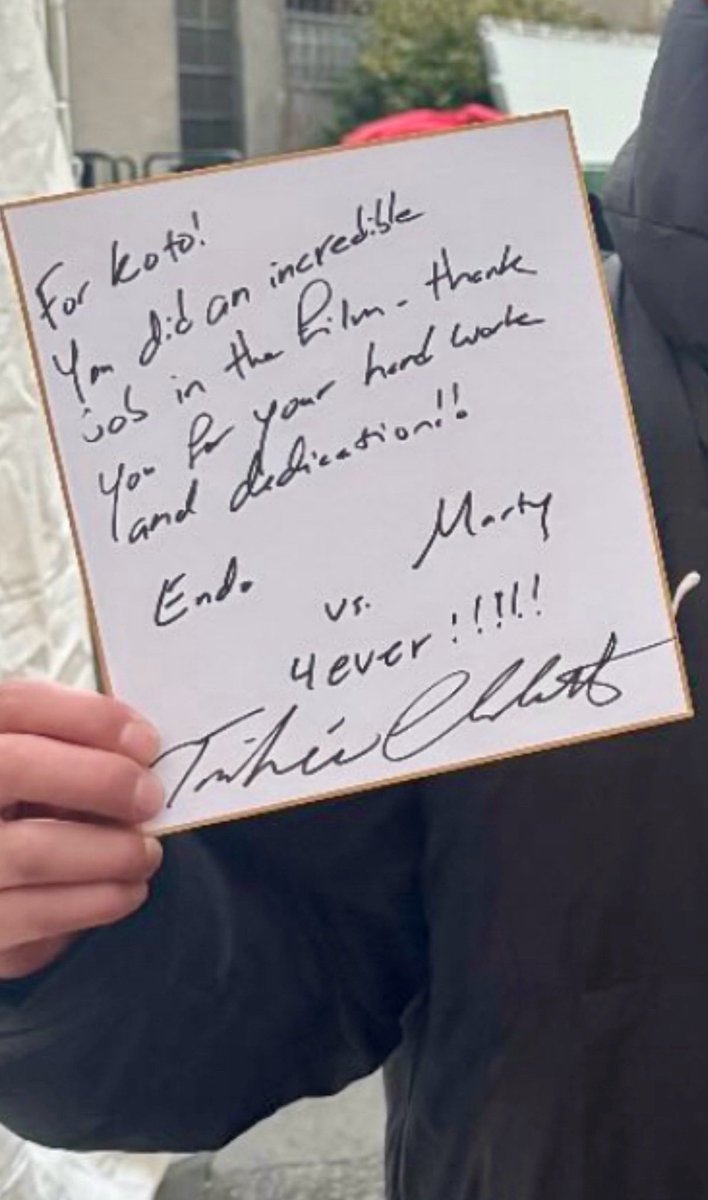 For Koto!
You did an incredible
job in the film - thank
you for your hard work
and dedication!!
Endo Marty
vs.
4ever!!!!!
Timothée Chalamet